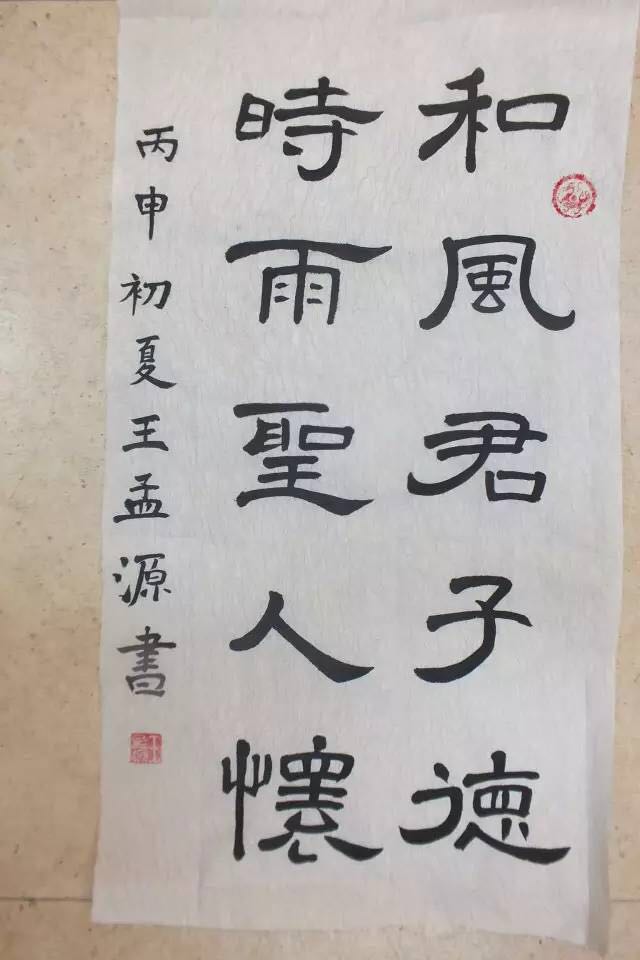 和風君子德
時雨聖人懷
丙申初夏王孟源書